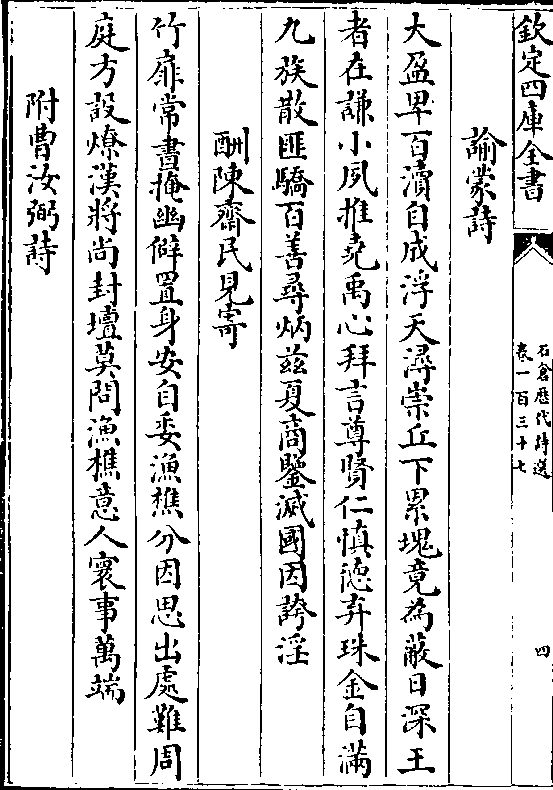 欽定四庫全書
石倉歷代詩選
卷一百三十七
四
諭蒙詩
大盈卑百瀆自成浮天潯崇丘下累塊竟為蔽日深王
者在謙小夙推堯禹心拜言尊賢仁慎德弃珠金自滿
九族散匪驕百善尋炳兹夏商鑒滅國因誇淫
酬陳齋民見寄
竹扉常晝掩幽僻置身安自委漁樵分因思出處難周
庭方設燎漢將尚封壇莫問漁樵意人寰事萬端
附曹汝弼詩